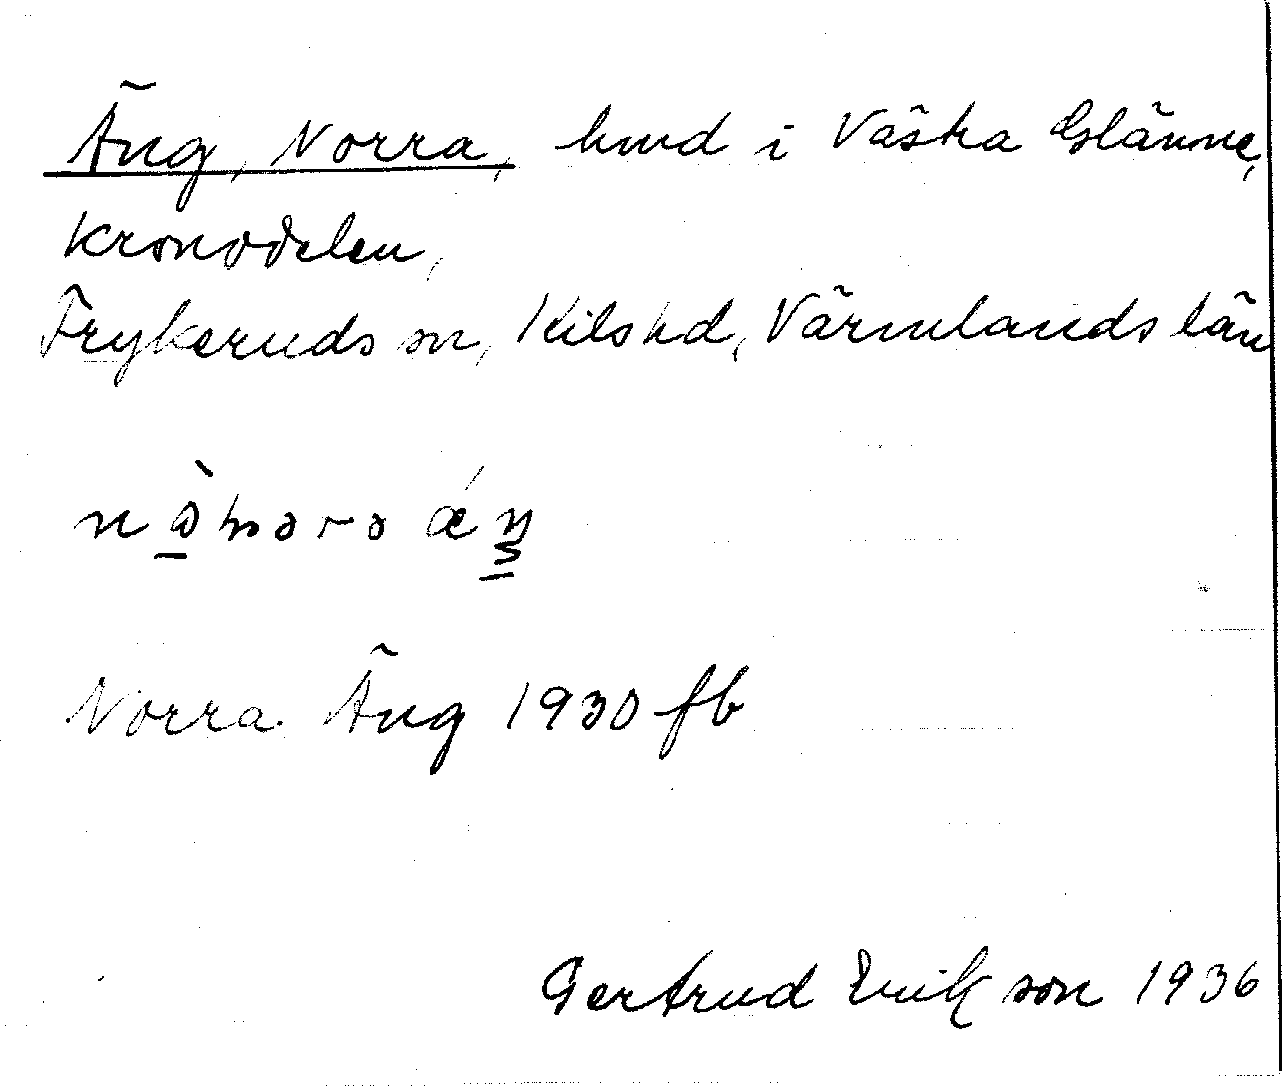 Äng, Norra, hmd i Västra Glänne,
kronodelen,
Frykeruds sn, Kils hd, Värmlands län
Norra Äng 1930 fb
Gertrud Erikson 1936